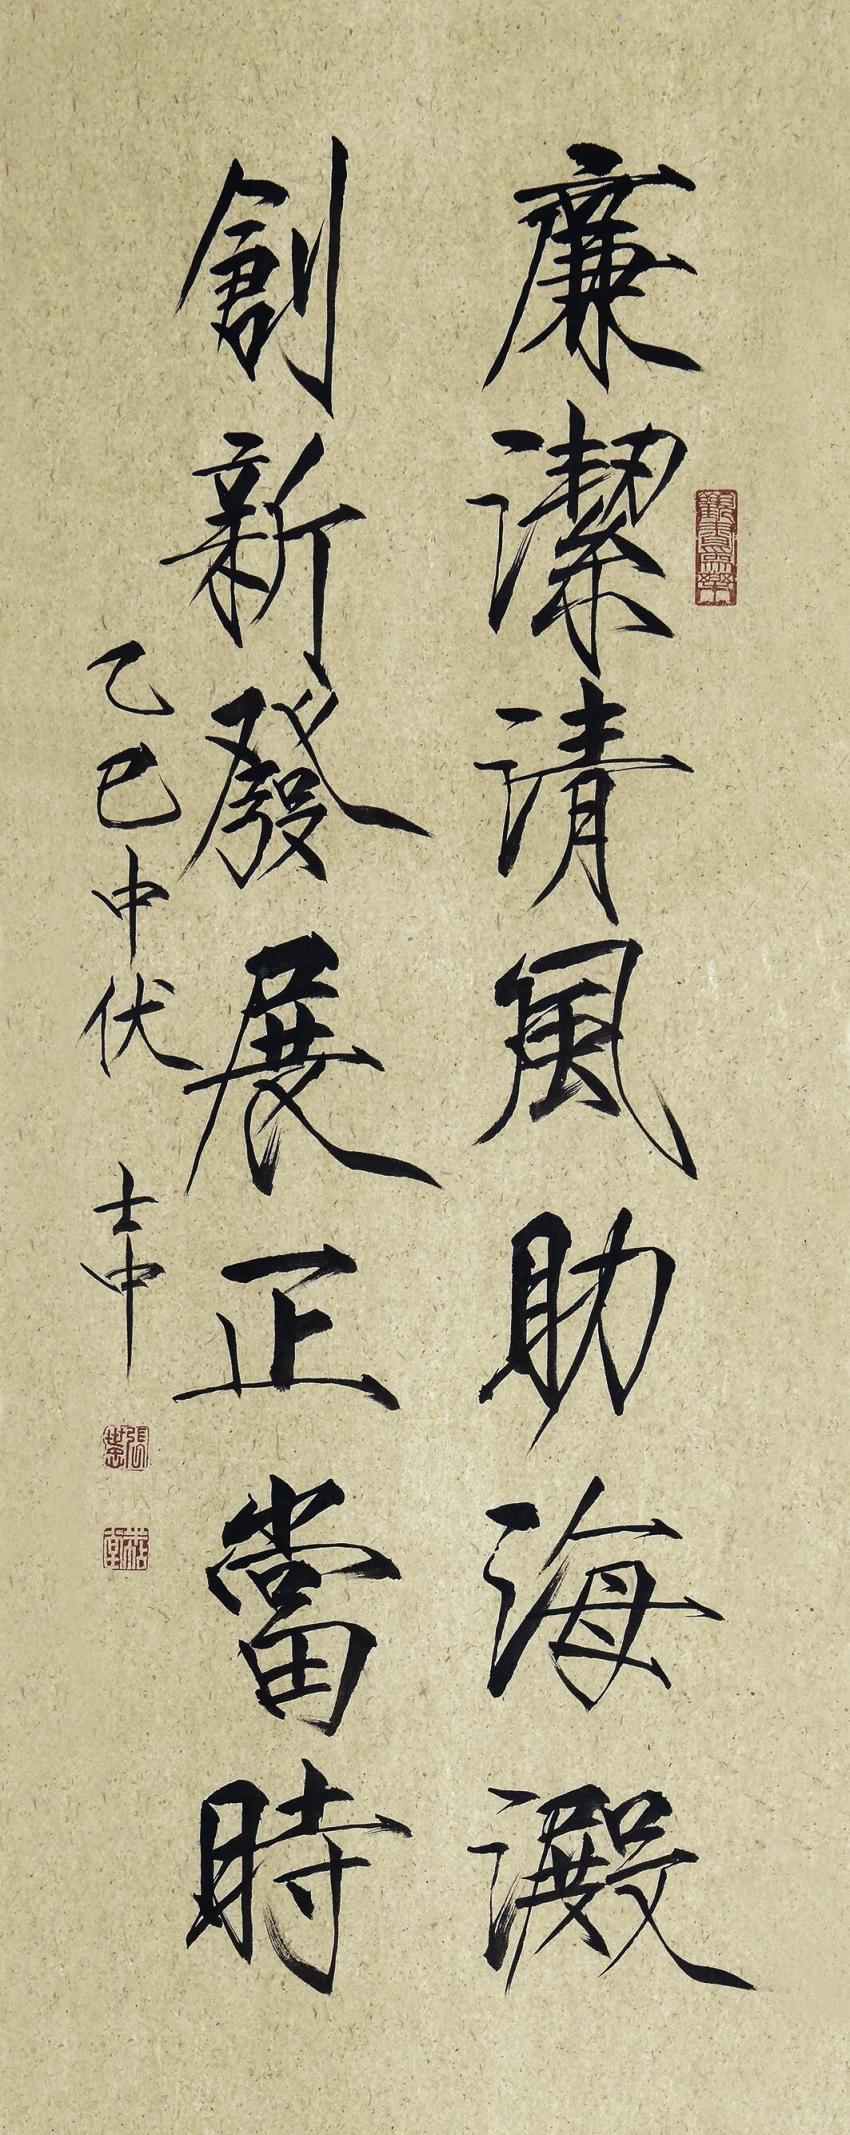 廉潔清風助海澱
創新發展正當時
乙巳中伏 士中